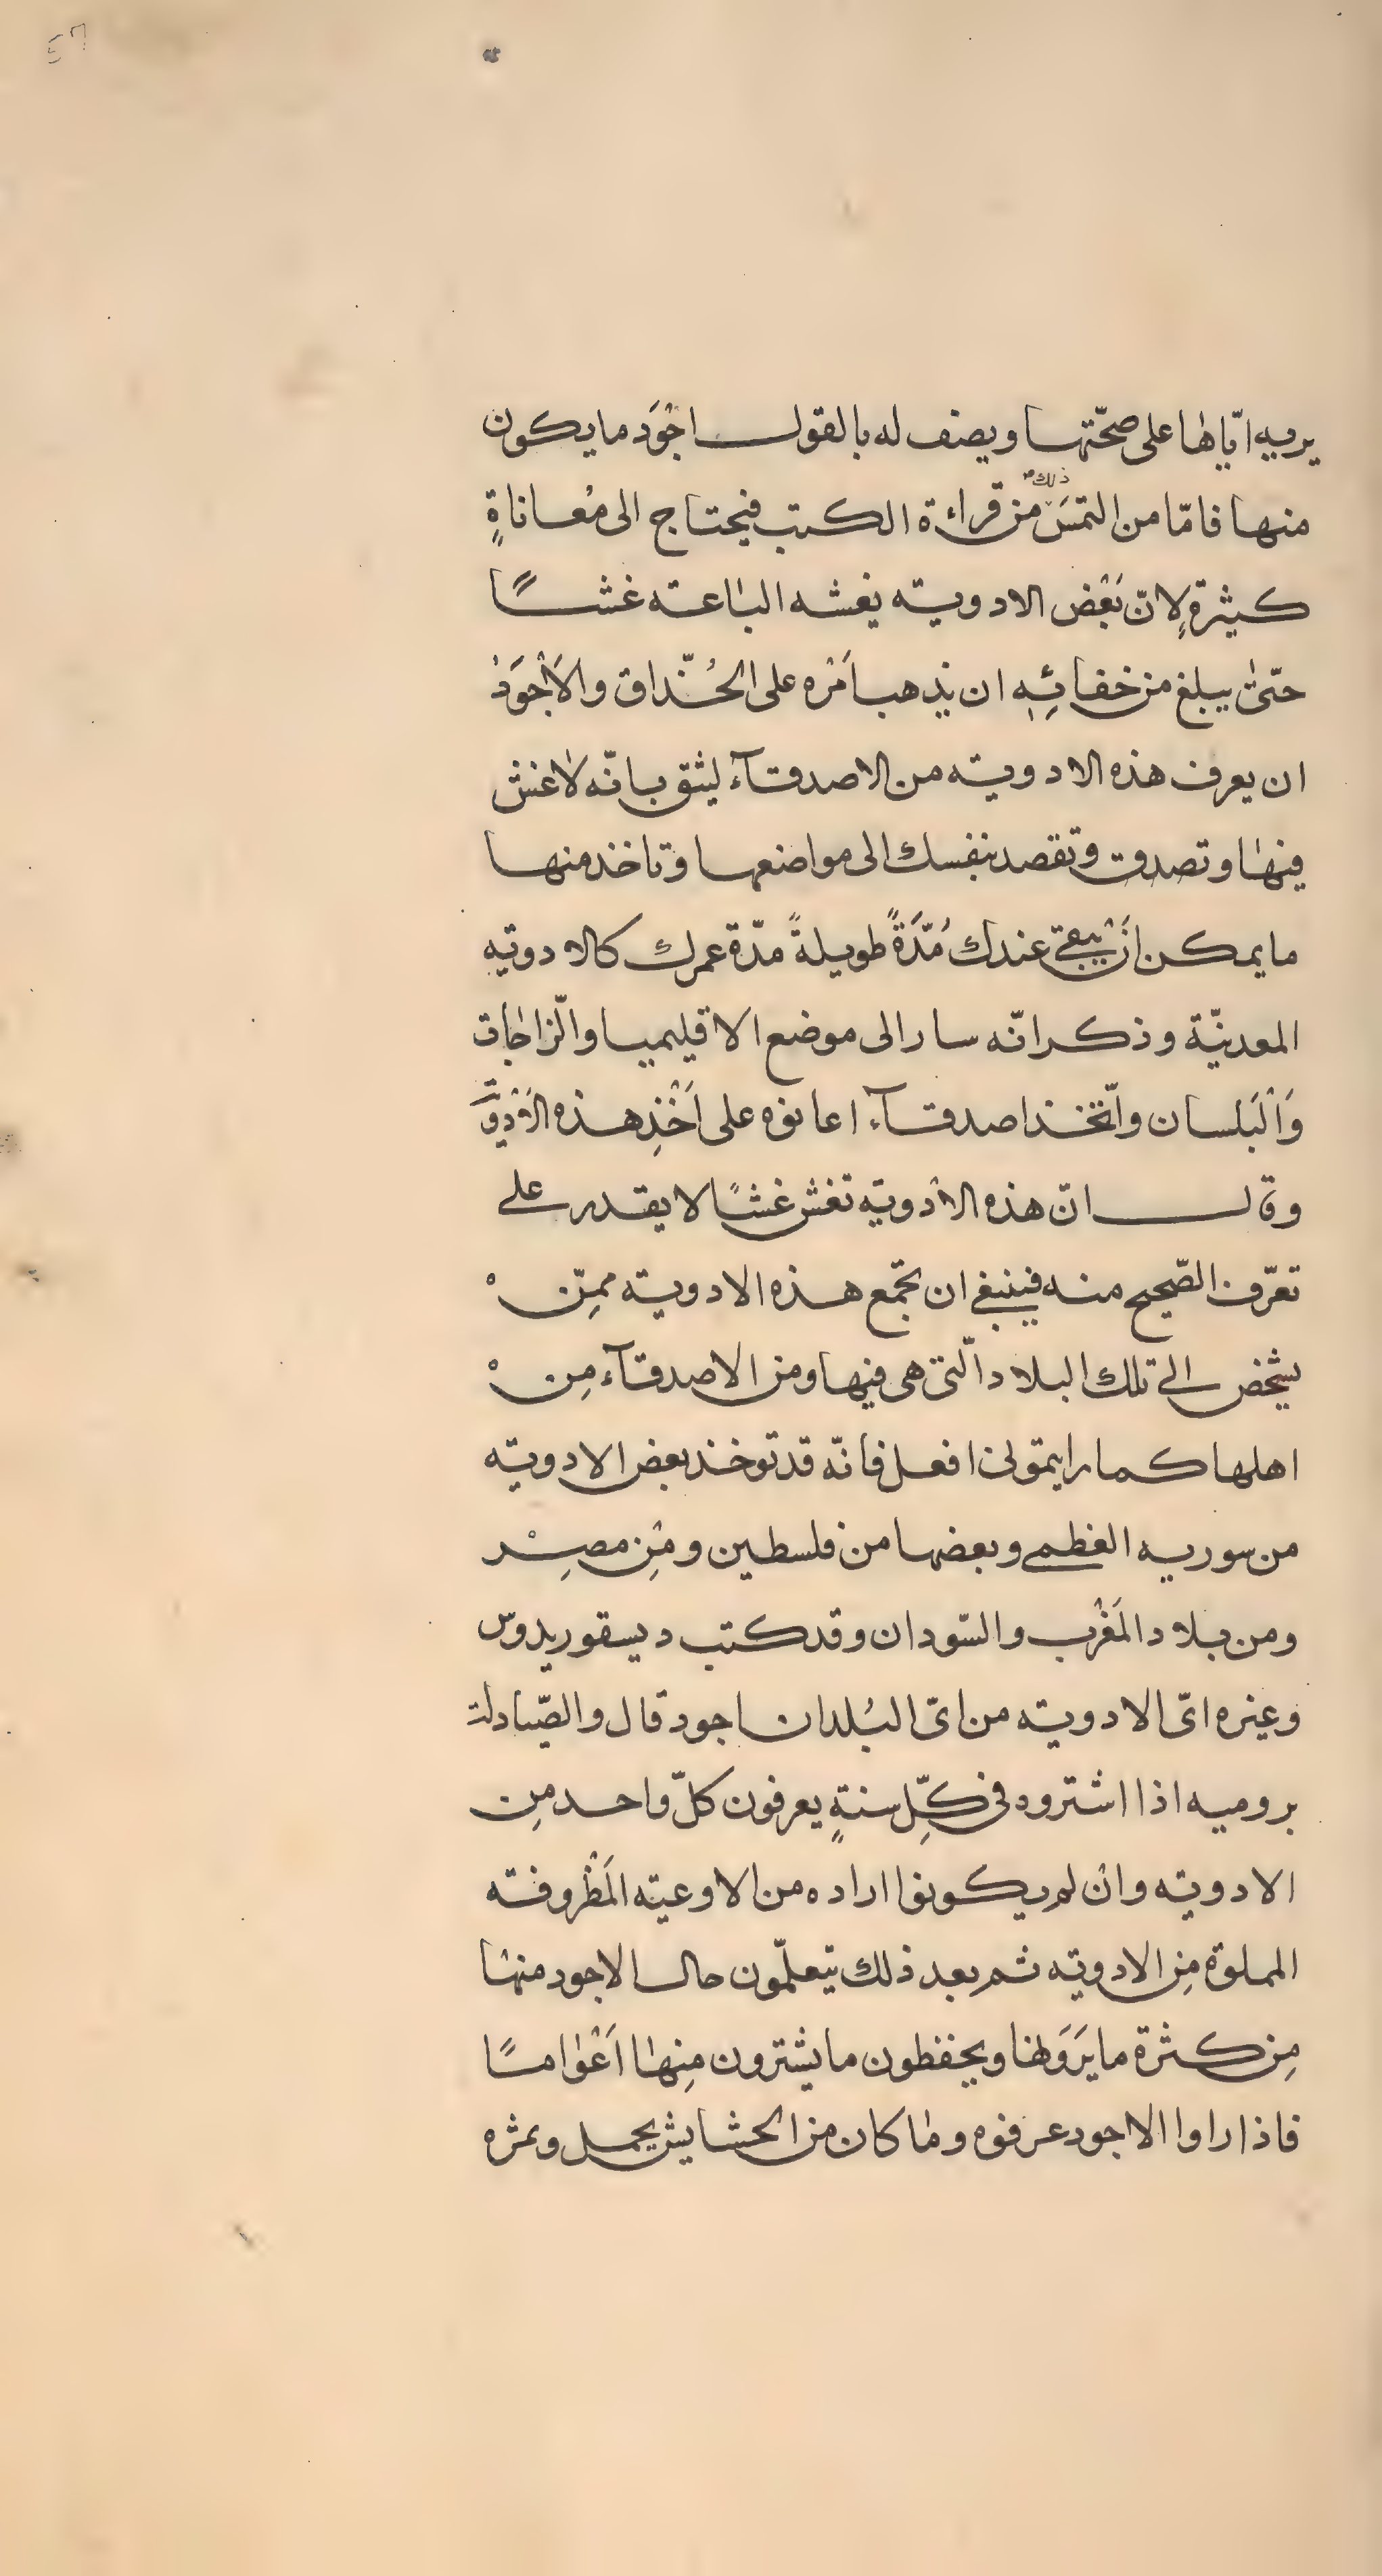 يريه ايّاها على صحّتها ويصف له بالقول اجْوَد ما يكون
منها فامّا من التمسَ ذلك من قراءة الكتب فيحتاج الى مُعاناةٍ
كثيرةٍ لانّ بَعْض الادوية يغشه الباعة غشًّا
حتّى يبلغ من خفائِه ان يذهب اَمْره على الحُذّاق والاَجْوَدُ
ان يعرف هذه الادوية من الاصدقآء ليثق بانّه لا غش
فيها وتصدق وتقصد بنفسك الى مواضعها وتاخذ منها
ما يمكن اَنْ يبقى عندك مُدّةً طويلةً مدّة عمرك كالادوية
المعدنيّة وذكر انّه سار الى موضع الاقليميا والزّاجات
وَالْبَلسان واتّخذ اصدقآء اعانوه على اَخْذِ هذه الادْوِيَة
وقال انّ هذه الادوية تغش غشًا لا يقدر على
تعرّف الصّحيح منه فينبغى ان تجمع هذه الادوية ممّنْ
يشخص الى تلك البلاد الّتى هى فيها ومن الاصدقآء مِنْ
اهلها كما رايتمونى افعل فانّه قد توخذ بعض الادوية
من سوريه العظمى وبعضها من فلسطين ومِن مصِرْ
ومن بلاد المَغْرب والسّودان وقد كتب ديسقوريدوس
وغيره اىّ الادوية من اىّ البُلدان اجود قال والصّيادلة
بروميه اذا اشتروه فى كلِّ سنةٍ يعرفون كلّ واحد مِن
الادوية وانْ لم يكونوا اراده من الاوعية المَظْروفة
المملوة مِن الادوية ثم بعد ذلك يتعلّمون حال الاجود منها
مِن كثرة ما يَرَوَنها ويحفظون ما يشترون مِنها اَعْوامًا
فاذا راوا الاجود عرفوه وما كان من الحشايش يحمل وثمره